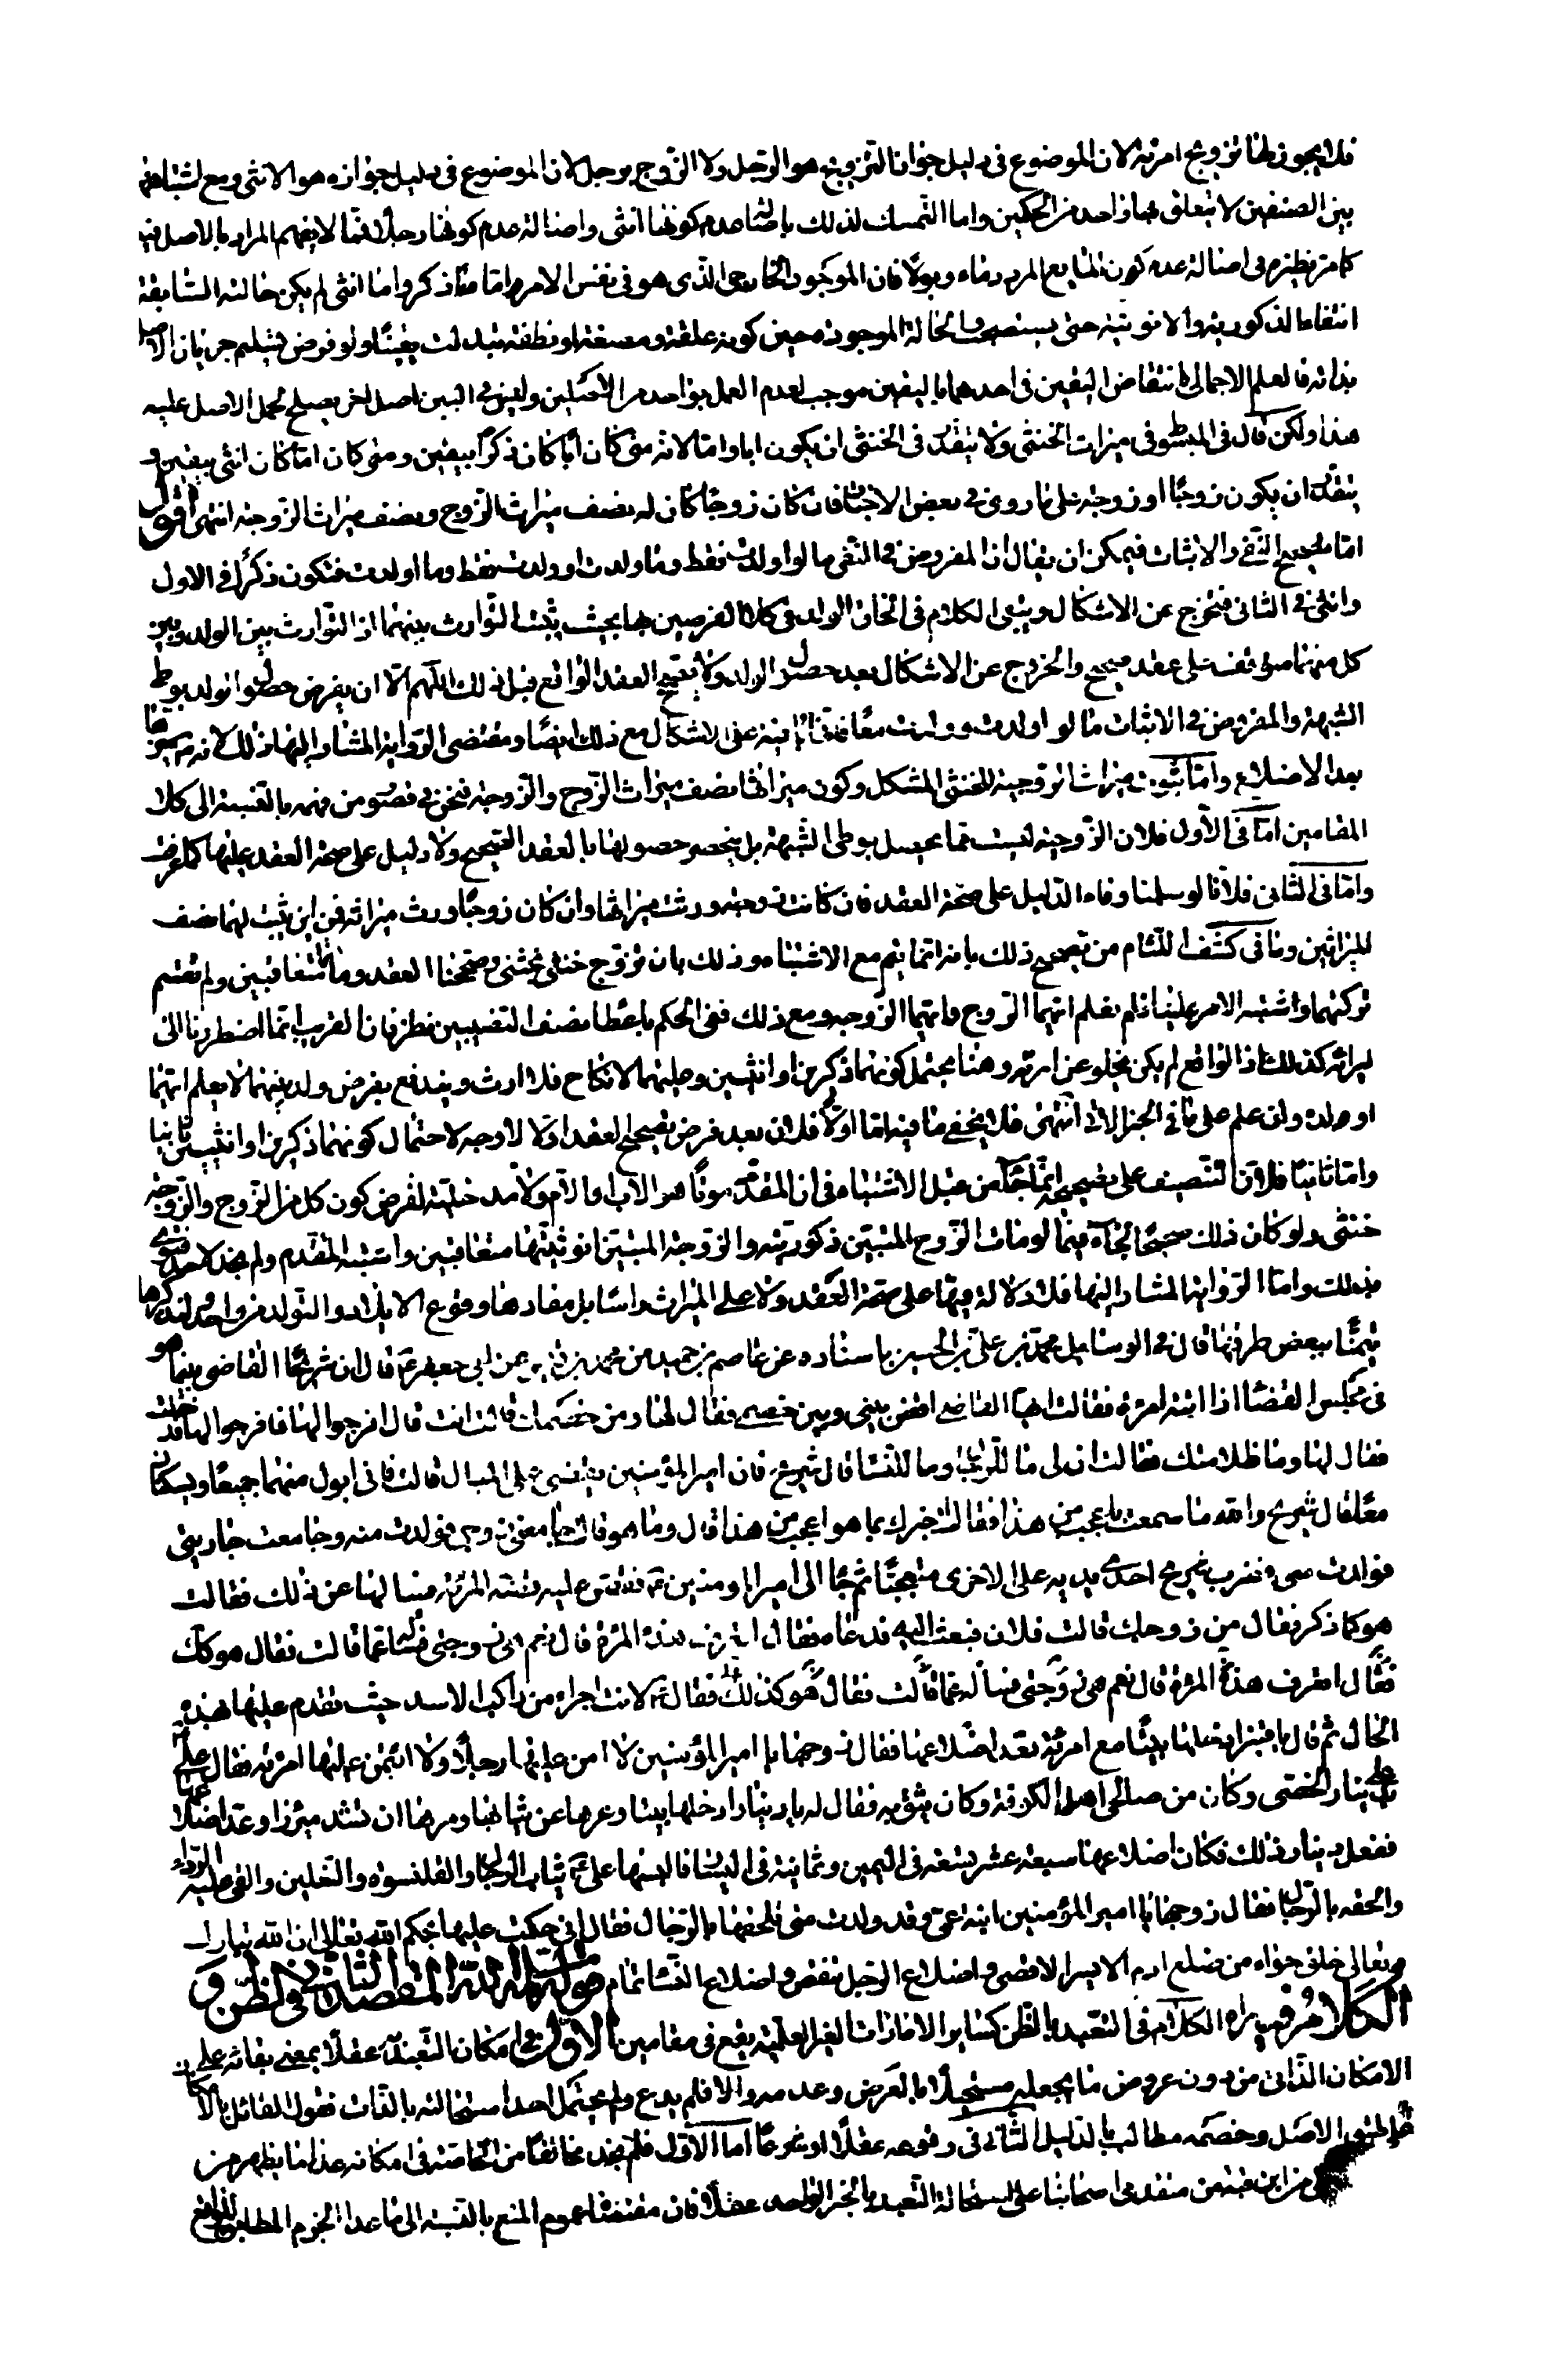 فلا يجوز لها تزويج امرئة لان الموضوع في دليل جواز التزويج هو الرّجل ولا التزوج برجل لان الموضوع في دليل جوازه هو الانثى ومع اشتباهه
بين الصنفين لا يتعلق بها واحد من الحكمين واما التمسك لذلك باصالة عدم كونها انثى واصالة عدم كونها رجلا فمما لا يفهم المراد بالاصل فيه
كما مر نظيره في اصالة عدم كون المايع المردد ماء وبولا فان الموجود الخارجي الذي هو في نفس الامر اما ذكر واما انثى لم يكن حالته السابقة
انتفاء الذكورية والانوثية حتى يستصحب الحالة الموجودة حين كونه علقة ومضغة او نطفة تبدلت يقينا ولو فرض تسليم جريان الاصل
بذاته فالعلم الاجمالي بانتقاض اليقين في احدهما باليقين موجب لعدم العمل بواحد من الاصلين وليس في البين اصل اخر يصلح لحمل الاصل عليه
هذا ولكن قال في المبسوط في ميراث الخنثى ولا يتقدر في الخنثى ان يكون ابا واما لانه متى كان ابا كان ذكرا بيقين ومتى كان اما كان انثى بيقين و
يتقدر ان يكون زوجا او زوجة على ما روى في بعض الاخبار فان كان زوجا كان له نصف ميراث الزوج ونصف ميراث الزوجة انتهى اقول
اما الجمع النفي والاثبات فيمكن ان يقال ان المفروض في النفى ما لو اولدت فقط وما ولدت او ولدت فقط وما اولدت فتكون ذكرا في الاول
وانثى في الثاني فتخرج عن الاشكال ويبقى الكلام في الحاق الولد في كلا الفرضين بها بحيث يثبت التوارث بينهما اذ التوارث بين الولد وبين
كل منهما متوقف على عقد صحيح والخروج عن الاشكال بعد حصول الولد ولا يصحح العقد الواقع قبل ذلك اللهم الا ان يفرض حصول الولد بوطى
الشبهة والمفروض في الاثبات ما لو اولدت وولدت معا باقية على الاشكال مع ذلك ايضا ومقتضى الرواية المشار اليها ذلك لانه
بعد الاضلاع واما ثبوت ميراث الزوجية للخنثى المشكل وكون ميراثها نصف ميراث الزوج والزوجة فنحن في قصور من فهمه بالنسبة الى كلا
المقامين اما في الاول فلان الزوجية ليست مما يحصل بوطى الشبهة بل ينحصر حصولها بالعقد الصحيح ولا دليل على صحة العقد عليها كما عرفت
واما في الثاني فلانا لو سلمنا وفاء الدليل على صحة العقد فان كانت زوجة ورثت ميراثها وان كان زوجا ورث ميراثه فمن اين ثبت لهما نصف
الميراثين وما في كشف اللثام من تصحيح ذلك بانه انما يتم مع الاشتباه وذلك بان تزوج خنثى بخنثى وصححنا العقد وماتا متعاقبين ولم تقسم
تركتهما واشتبه الامر علينا فلم يعلم ايهما الزوج وايهما الزوجة ومع ذلك ففي الحكم باعطاء نصف النصيبين نظر فان الغريب انما اضطرنا الى
ميراثه كذلك اذ الواقع لم يكن يخلو عن ارثه وهنا يحتمل كونهما ذكرين او انثيين وعليهما لا نكاح فلا ارث ويندفع بفرض ولد بينهما لا يعلم ايهما
اولده وان علم على ما في الخبر الاتي انتهى فلا يخفى ما فيه اما اولا فلان بعد فرض تصحيح العقد اولا لا وجه لاحتمال كونهما ذكرين او انثيين ثانيا
واما ثانيا فلان التنصيف على تصحيحه انما جاء من قبل الاشتباه في ان المقدم موتا هو الاب او الام ولا مدخلية لفرض كون كل من الزوج والزوجة
خنثى ولو كان ذلك صحيحا لجاء فيما لو مات الزوج المتبين ذكوريته والزوجة المتبين انوثيتها متعاقبين واشتبه المتقدم ولم نجد لاحد
بذلك واما الرواية المشار اليها فلا دلالة فيها على صحة العقد ولا على الميراث راسا بل مفادها وقوع الايلاد والتولد من واحد لنذكرها
تيمنا ببعض طرقها قال في الوسايل محمد بن علي بن الحسين باسناده عن عاصم بن حميد عن محمد بن قيس عن ابي جعفر ع قال ان شريحا القاضي بينما هو
في مجلس القضاء اذا اتته امرئة فقالت ايها القاضي اقض بيني وبين خصمي فقال لها ومن خصمك قالت انت قال افرجوا لها فافرجوا لها فدخلت
فقال لها وما ظلامتك فقالت ان لي ما للرجال وما للنساء قال شريح فان امير المؤمنين يقضى على المبال قالت فاني ابول منهما جميعا ويسكنان
معا قال شريح والله ما سمعت باعجب من هذا فقالت اخبرك بما هو اعجب من هذا قال وما هو قالت جامعني زوجي فولدت منه وجامعت جاريتي
فولدت مني فضرب شريح احدى يديه على الاخرى متعجبا ثم جاء الى امير المؤمنين ع فقص عليه قصة المرئة فسالها عن ذلك فقالت
هو كما ذكر فقال من زوجك قالت فلان فبعث اليه فدعاه فقال اتعرف هذه المرئة قال نعم هي زوجتي فسأله عما قالت فقال هو كك
فقال اتعرف هذه المرئة قال نعم هي زوجتي فسأله عما قالت فقال هو كذلك فقال ع لانت اجرء من راكب الاسد حيث تقدم عليها بهذه
الحال ثم قال يا قنبر ادخلها بيتا مع امرئة تعد اضلاعها فقال زوجها يا امير المؤمنين لا امن عليها رجلا ولا ائتمن عليها امرئة فقال علي
علي بدينار الخصى وكان من صالحي اهل الكوفة وكان يثق به فقال له يا دينار ادخلها بيتا وعرها عن ثيابها ومرها ان تشد ميزرا وعد اضلاعها
ففعل دينار ذلك فكان اضلاعها سبعة عشر تسعة في اليمين وثمانية في اليسار فالبسها علي ع ثياب الرجال والقلنسوة والنعلين والقى عليه الرداء
والحقه بالرجال فقال زوجها يا امير المؤمنين ابنة عمي وقد ولدت مني تلحقها بالرجال فقال اني حكمت عليها بحكم الله تعالى ان الله تبارك
وتعالى خلق حواء من ضلع ادم الايسر الاقصى واضلاع الرجل تنقص واضلاع النساء تمام المقصد الثاني في الظن و
الكلام فيه الكلام في التعبد بالظن كساير الامارات الغير العلمية يقع في مقامين الاول في امكان التعبد به عقلا بمعنى بقائه على
الامكان الذاتي من دون عروض ما يجعله مستحيلا بالعرض وعدمه والا فلم يدع ولم يحتمل احد استحالته بالذات فقول القائل بالامكان
الاصل وخصمه مطالب بالدليل الثاني في وقوعه عقلا او شرعا اما الاول فلم نجد مخالفا من الخاصة في امكانه عدا ما يظهر من
من ابن قبة من متقدمي اصحابنا على استحالة التعبد بالخبر الواحد عقلا فان مقتضاه عموم المنع بالنسبة الى ما عدا الجزم المطابق للواقع